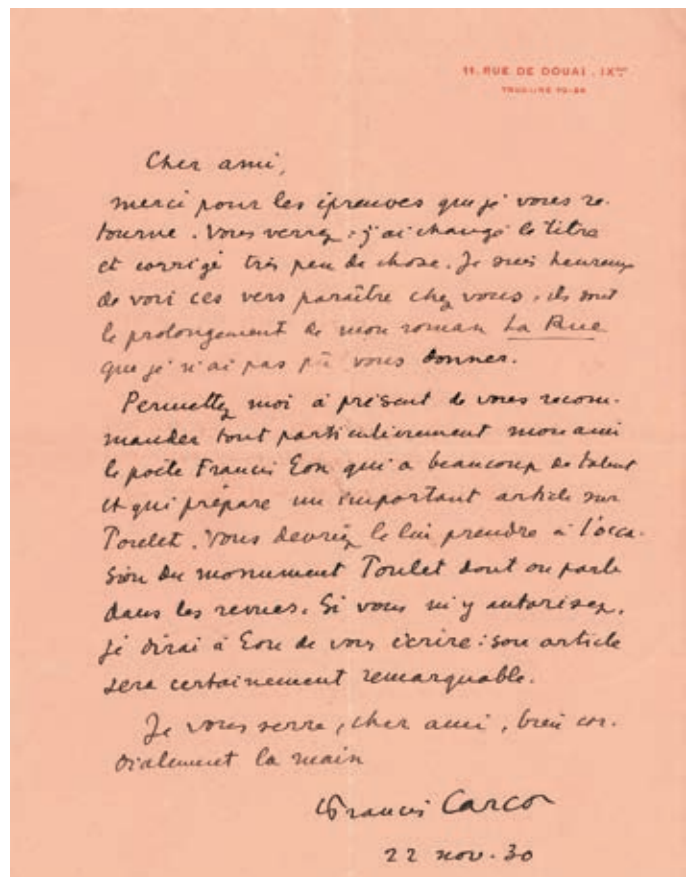 11, RUE DE DOUAI . IXme
Cher ami,
merci pour les épreuves que je vous re-
tourne. Vous verrez : j'ai changé le titre
et corrigé très peu de chose. Je suis heureux
de voir ces vers paraître chez vous, ils sont
le prolongement de mon roman La Rue
que je n'ai pas pu vous donner.
Permettez moi à présent de vous recom-
mander tout particulièrement mon ami
le poète Francis Eon qui a beaucoup de talent
et qui prépare un important article sur
Toulet. Vous devriez le lui prendre à l'occa-
sion du monument Toulet dont on parle
dans les revues. Si vous m'y autorisez,
je dirai à Eon de vous écrire : son article
sera certainement remarquable.
Je vous serre, cher ami, bien cor-
dialement la main
Francis Carco
22 nov. 30